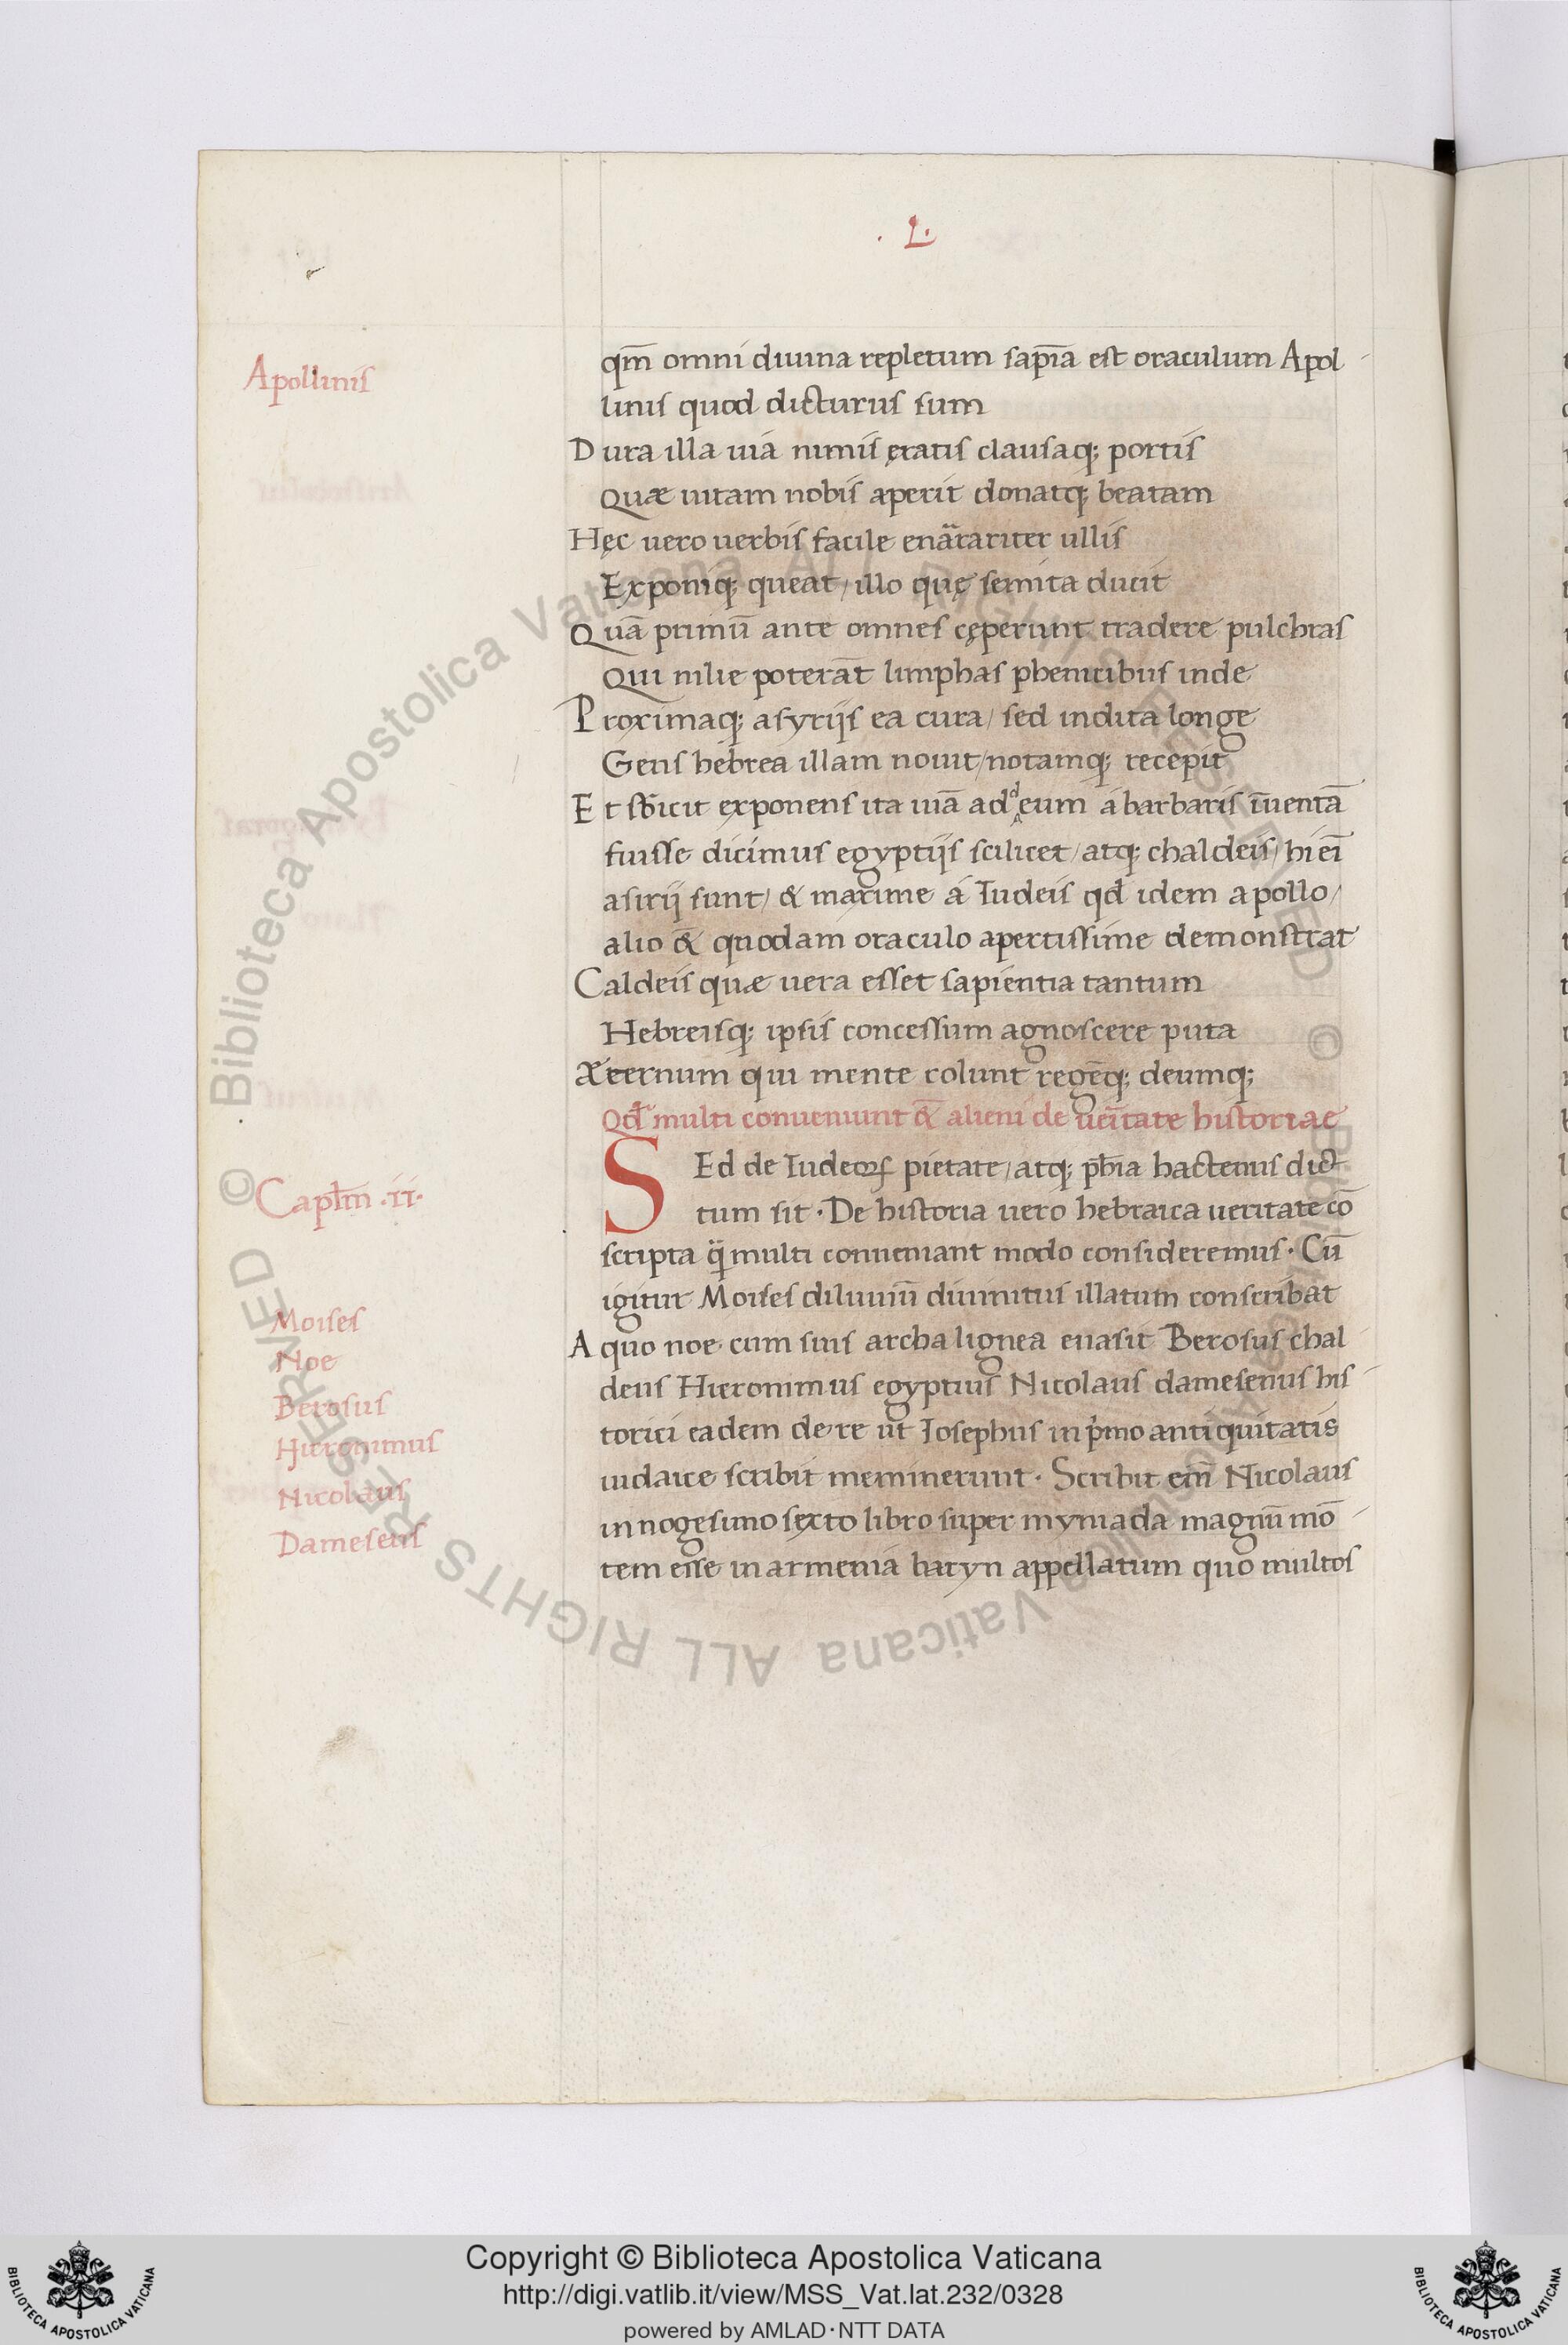 . L.
Apollinis
qm̄ omni diuina repletum sap̄ia est oraculum Apol
linis quod dicturus sum
Dura illa uia nimis ęratis clausaq; portis
Quæ uitam nobis aperit donatq; beatam
Hęc uero uerbis facile enārariter ullis
Exponiq; queat/ illo quę semita ducit
Quā primū ante omnes cęperunt tradere pulchras
Qui nilie poterāt limphas phenicibus inde
Proximaq; asyrijs ea cura/ sed indita longe
Gens hebrea illam nouit/ notamq; recepit
Et exponens ita uiā ad deum a barbaris īuentā
fuisse dicimus egyptijs scilicet/ atq; chaldeis/ hi ei̅
asirij sunt/ & maxime a Iudeis qd idem apollo/
alio & quodam oraculo apertissime demonstrat
Caldeis quæ uera esset sapientia tantum
Hebreisq; ipsis concessum agnoscere puta
Æternum qui mente colunt regēq; deumq;
Qd multi conueniunt & alieni de ueritate historiae
Capłm .II.
Sed de Iudeoꝝ pietate/ atq; pħia hactenus dic
tum sit . De historia uero hebraica ueritate cō
scripta q̄ multi conueniant modo consideremus . Cū
igitur Moises diluuiū diuinitus illatum conscribat
A quo noe cum suis archa lignea euasit Berosus chal
deus Hieronimus egyptius Nicolaus damesenus his
torici eadem de re ut Iosephus in pimo antiquitatis
iudaice scribit meminerunt . Scribit em̄ Nicolaus
in nogesimo sexto libro super myriada magnū mō
tem esse in armenia batyn appellatum quo multos
Moises
Noe
Berosus
Hieronimus
Nicolaus
Damesens
© Biblioteca Apostolica Vaticana ALL RIGHTS RESERVED © Biblioteca Apostolica Vaticana ALL RIGHTS RESERVED
Copyright © Biblioteca Apostolica Vaticana
http://digi.vatlib.it/view/MSS_Vat.lat.232/0328
powered by AMLAD·NTT DATA
BIBLIOTECA APOSTOLICA VATICANA
BIBLIOTECA APOSTOLICA VATICANA